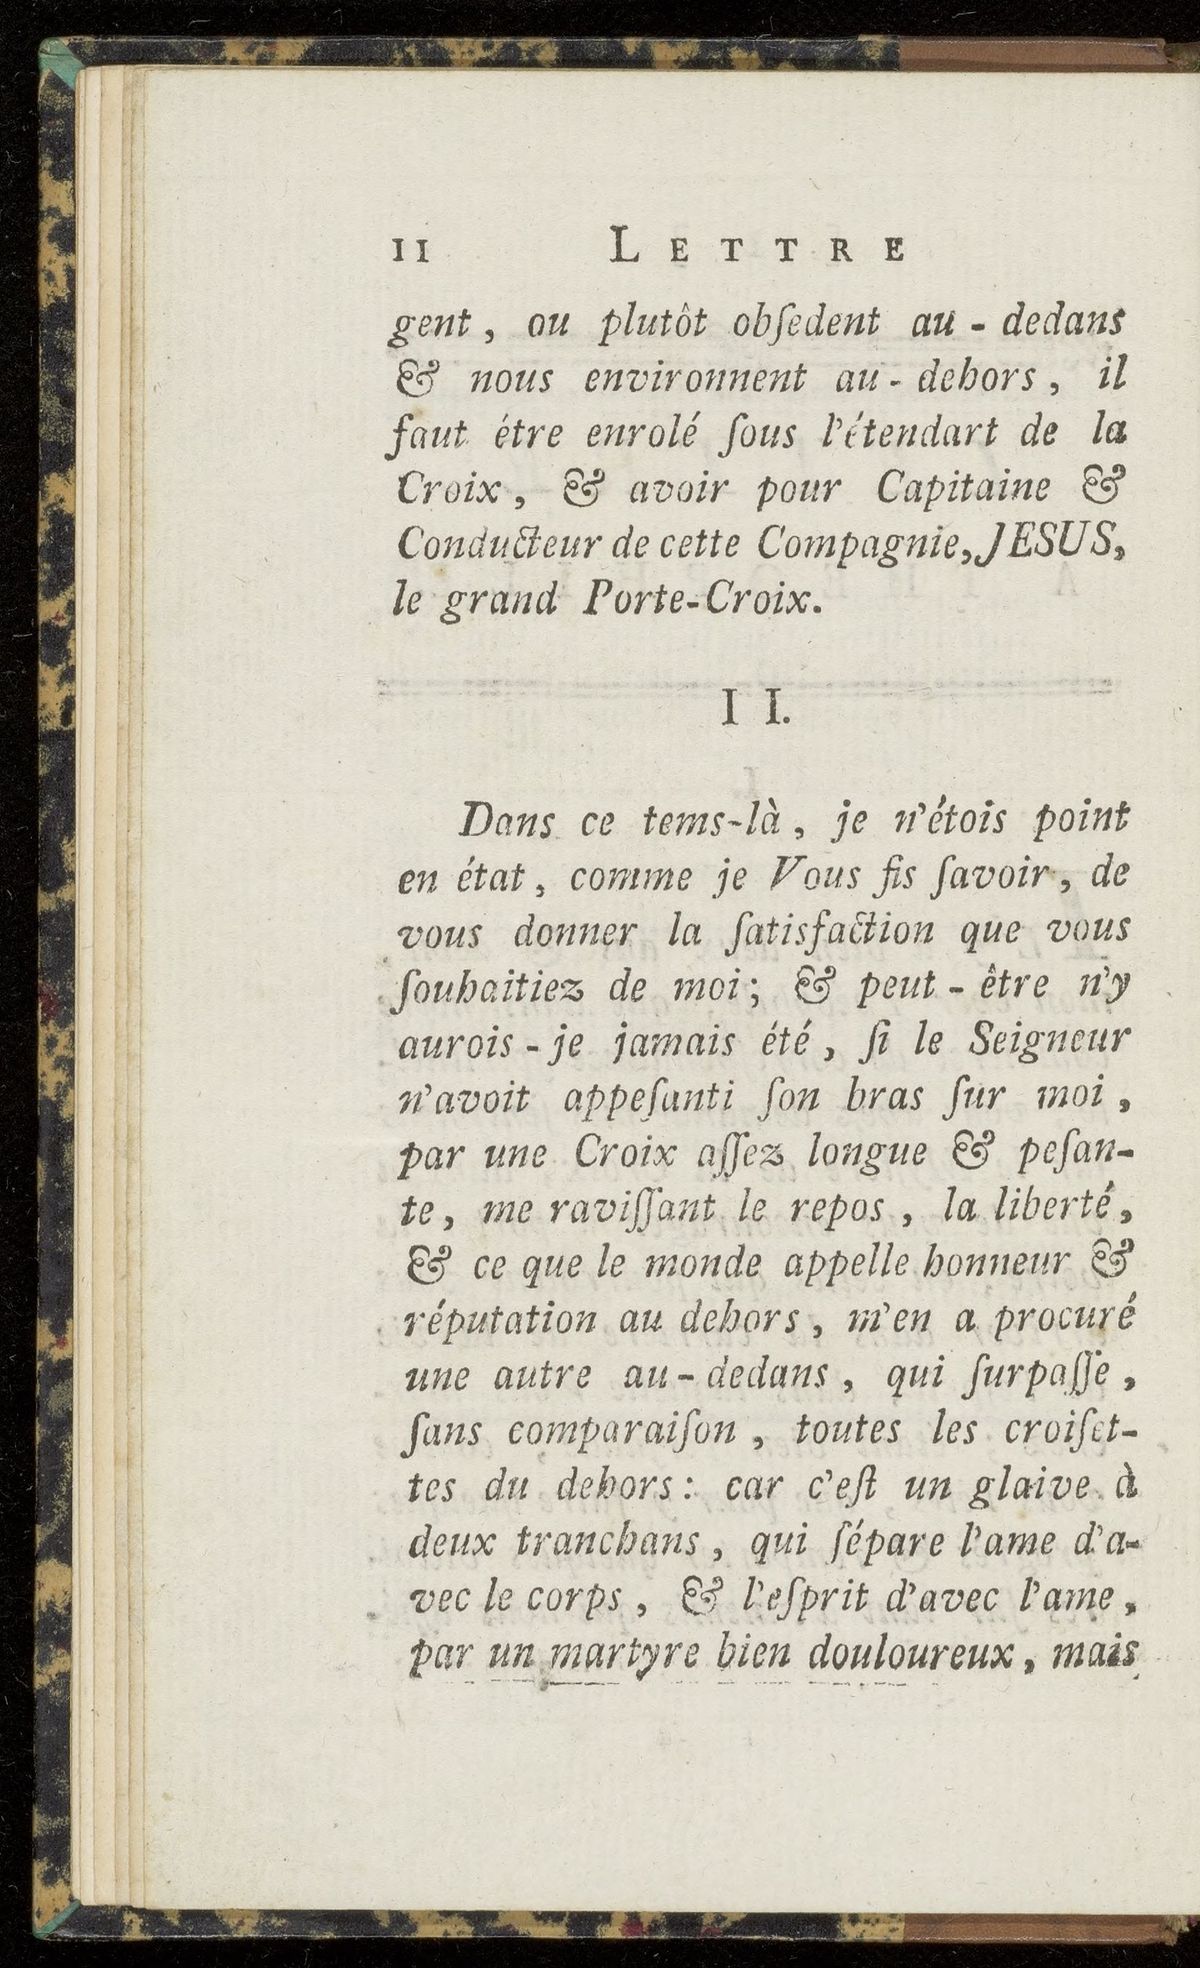 II LETTRE
gent, ou plutôt obſedent au-dedans
& nous environnent au-dehors, il
faut étre enrolé ſous l'étendart de la
Croix, & avoir pour Capitaine &
Conducteur de cette Compagnie, JESUS,
le grand Porte-Croix.
II.
Dans ce tems-là, je n'étois point
en état, comme je Vous fis ſavoir, de
vous donner la ſatisfaction que vous
ſouhaitiez de moi; & peut-être n'y
aurois-je jamais été, ſi le Seigneur
n'avoit appeſanti ſon bras ſur moi,
par une Croix aſſez longue & peſan-
te, me raviſſant le repos, la liberté,
& ce que le monde appelle honneur &
réputation au dehors, m'en a procuré
une autre au-dedans, qui ſurpaſſe,
ſans comparaiſon, toutes les croiſet-
tes du dehors: car c'eſt un glaive à
deux tranchans, qui ſépare l'ame d'a-
vec le corps, & l'eſprit d'avec l'ame,
par un martyre bien douloureux, mais